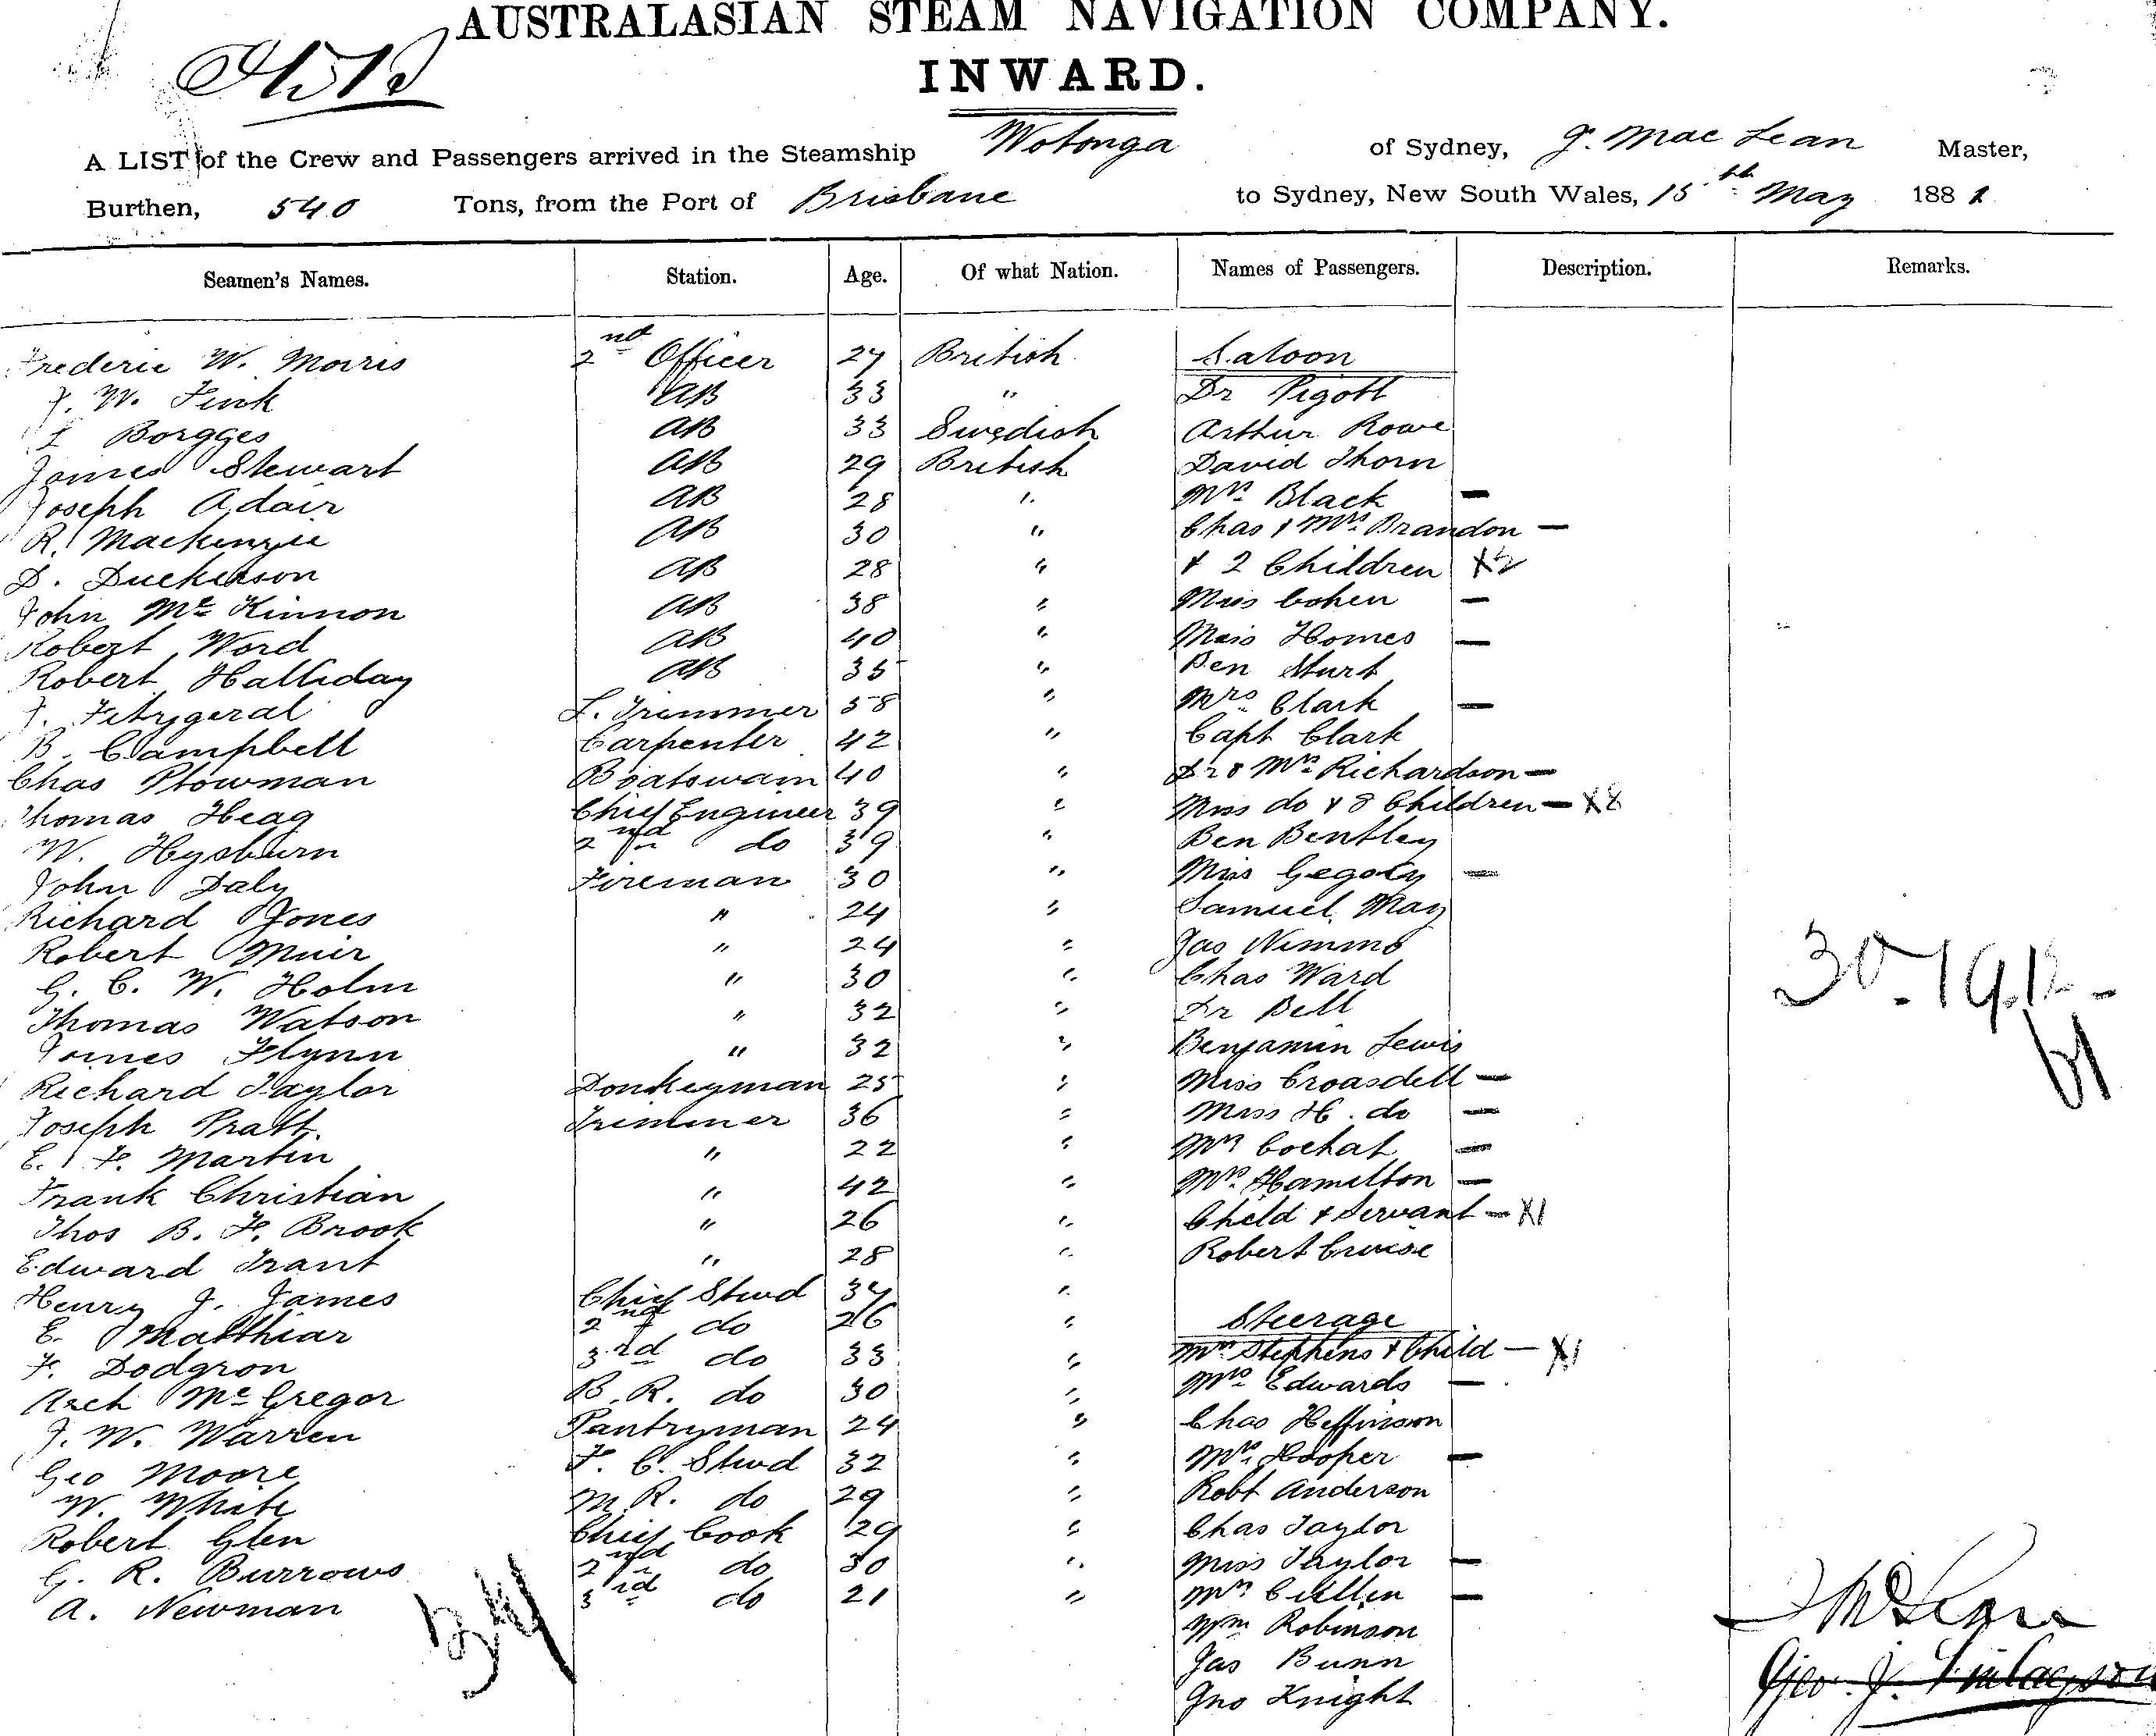 AUSTRALASIAN STEAM NAVIGATION COMPANY.
INWARD.
A LIST of the Crew and Passengers arrived in the Steamship Wotonga of Sydney, J. Mac Lean Master,
Burthen, 540 Tons, from the Port of Brisbane to Sydney, New South Wales, 15th May 1881
Seamen's Names. Station. Age. Of what Nation. Names of Passengers. Description. Remarks.
Frederic W. Morris 2nd Officer 27 British Saloon
J. W. Fink AB 33 " Dr Pigott
Borgges AB 33 Swedish Arthur Rowe
James Stewart AB 29 British David Thorn
Joseph Adair AB 28 " Mrs Black —
R. Mackenzie AB 30 " Chas & Mrs Brandon —
D. Duckerson AB 28 " & 2 Children X2
John Mc Kinnon AB 38 " Miss Cohen —
Robert Word AB 40 " Miss Homes —
Robert Halliday AB 35 " Ben Sturt
Fitzgeral L. Trimmer 58 " Mrs Clark —
B. Campbell Carpenter 42 " Capt Clark
Chas Plowman Boatswain 40 " Mrs Richardson —
Thomas Heag Chief Engineer 39 " Miss do & 8 Children — X8
W. Hysburn 2nd do 39 " Ben Bentley
John Daly Fireman 30 " Miss Gegory —
Richard Jones " 24 " Samuel May
Robert Muir " 24 " Jas Nimmo
G. C. W. Holm " 30 " Chas Ward
Thomas Watson " 32 " Dr Bell
James Flynn " 32 " Benjamin Lewis
Richard Taylor Donkeyman 25 " Miss Croasdell —
Joseph Pratt. Trimmer 36 " Miss H. do —
E. F. Martin " 22 " Mrs Cochat —
Frank Christian " 42 " Mrs Hamilton —
Thos B. F. Brook " 26 " Child & Servant — X1
Edward Trant " 28 " Robert Cruise
Henry J. James Chief Stwd 34 "
E. Matthiar 2nd do 26 " Steerage
F. Dodgron 3rd do 33 " Mrs Stephens & Child — X1
Arch Mc Gregor B. R. do 30 " Mrs Edwards —
J. W. Warren Pantryman 24 " Chas Heffinson
Geo Moore F. C. Stwd 32 " Mrs Hooper —
W. White M. R. do 29 " Robt Anderson
Robert Glen Chief Cook 29 " Chas Taylor
G. R. Burrows 2nd do 30 " Miss Taylor —
A. Newman 3rd do 21 " Mrs Cullen —
Wm Robinson
Jas Bunn
Jno Knight
30.19.12 -
61
Geo. J. Finlayson